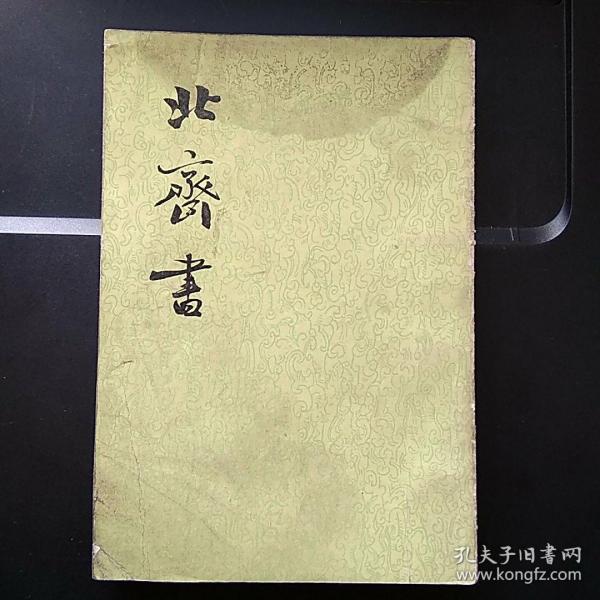 北齊書
孔夫子旧書网
www.kongfz.com